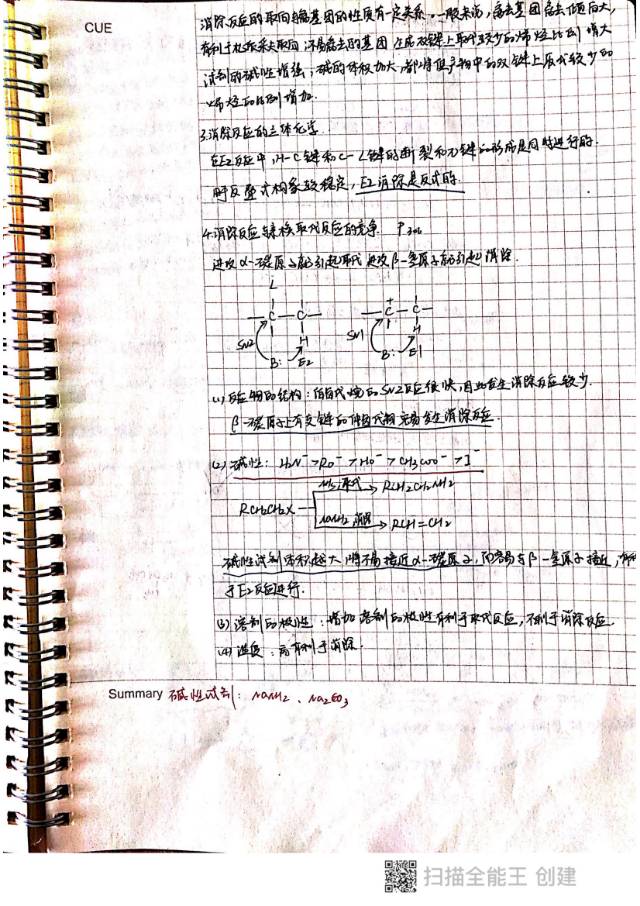 CUE
消除反应的取向与离去基团的性质有一定关系，一般来说，离去基团离去倾向大，
有利于扎依采夫取向，不易离去的基团生成双键上取代较少的烯烃比例增大
试剂的碱性增强，碱的体积加大，都将使产物中的双键上取代较少的
烯烃的比例增加.
3.消除反应的立体化学.
在E2反应中，H-C键和C-L键的断裂和π键的形成是同时进行的.
对反叠式构象较稳定，E2消除是反式的.
4.消除反应与亲核取代反应的竞争. P
进攻α-碳原子能引起取代 进攻β-氢原子能引起消除.
L
—C—C—
H
SN2 B: E2
+
—C—C—
H
SN1 B: E1
(1)反应物的结构：伯卤代烷的SN2反应很快，因此发生消除反应较少.
β-碳原子上有支链的伯卤代物容易发生消除反应.
(2)碱性：H2N⁻>RO⁻>HO⁻>CH3COO⁻>I⁻
NH3 取代 → RCH2CH2NH2
RCH2CH2X
NaNH2 消除 → RCH=CH2
碱性试剂体积越大，将不易接近α-碳原子，而容易与β-氢原子接近，有利
于E2反应进行.
(3)溶剂的极性：增加溶剂的极性有利于取代反应，不利于消除反应.
(4)温度：高有利于消除.
Summary 碱性试剂：NaNH2、Na2CO3
扫描全能王 创建